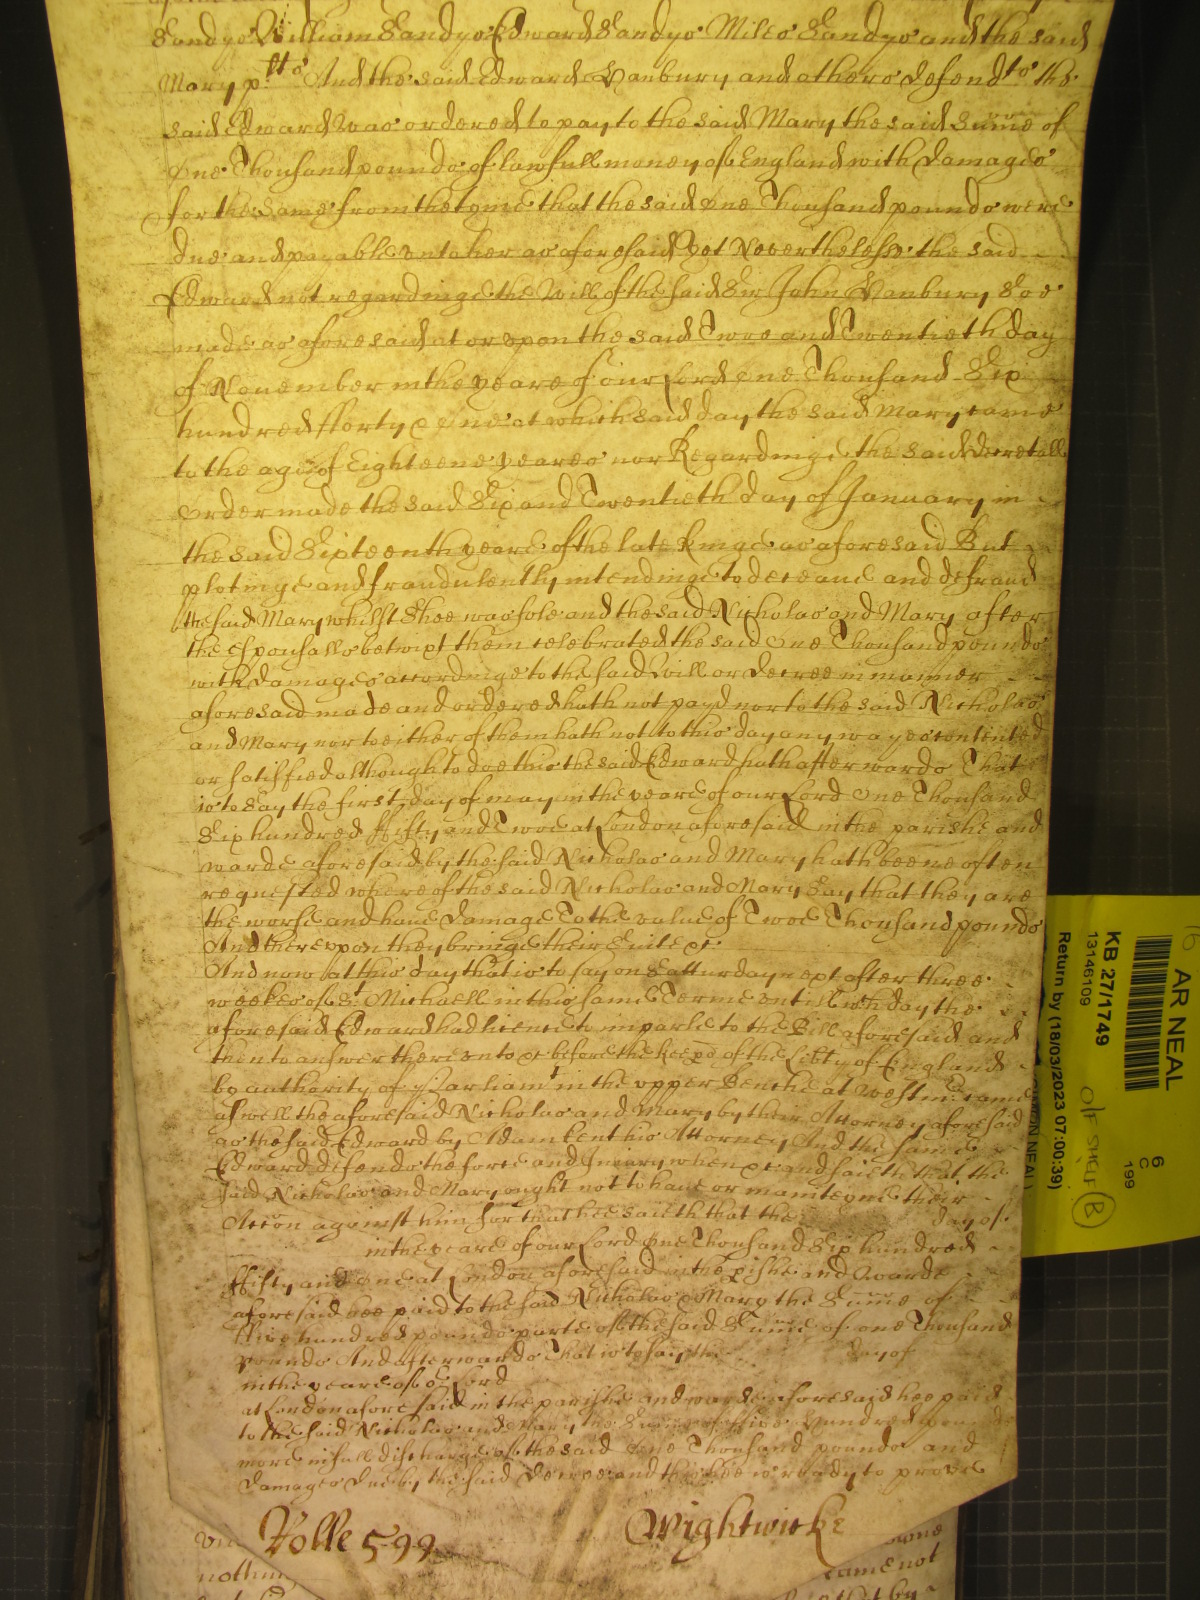 Sandys William Sandys Edward Sandys Miles Sandys and the said
Mary pltts And the said Edward Hanbury and others defendts the
said Edward was ordered to pay to the said Mary the said Sume of
One Thousand pounds of lawfull money of England with damages
for the same from the tyme that the said One Thousand pounds were
due and payable unto her as aforesaid Yet Neverthelesse the said
Edward not regardinge the Will of the said Sir John Hanbury Soe
made as aforesaid at or upon the said Twoe and Twentieth day
of November in the yeare of our Lord One Thousand Six
hundred fforty & One at which said day the said Mary came
to the age of Eighteene yeares nor Regardinge the said decretall
Order made the said Six and Twentieth day of January in
the said Sixteenth yeare of the late Kinge as aforesaid But
plotinge and fraudulently intendinge to deceave and defraud
the said Mary whilst Shee was sole and the said Nicholas and Mary after
the Espousalls betwixt them celebrated the said One Thousand pounds
with damages accordinge to the said Will or decree in manner
aforesaid made and ordered hath not payd nor to the said Nicholas
and Mary nor to either of them hath not to this day any wayes contented
or satisfied although to doe this the said Edward hath afterwards That
is to Say the first day of may in the yeare of our Lord One Thousand
Six hundred ffifty and Twoe at London aforesaid in the parishe and
warde aforesaid by the said Nicholas and Mary hath beene often
requested whereof the said Nicholas and Mary Say that they are
the worse and have damage To the value of Twoe Thousand pounds
And thereupon they bringe their Suite &c
And now at this day that is to say on Satturday next after three
weekes of St Michaell in this same Terme untill wch day the
aforesaid Edward had licence to imparle to the Bill aforesaid and
then to answer thereunto &c before the keeps of the Libty of England
by authority of Parliamt in the upper Benche at Westm: came
aswell the aforesaid Nicholas and Mary by their Attorney aforesaid
as the said Edward by Adam Kent his Attorney And the same
Edward defends the force and Injury when &c and saieth that the
said Nicholas and Mary ought not to have or mainteyne their
Accon against him for that hee saieth that the day of
in the yeare of our Lord One Thousand Six hundred
ffifty and One at London aforesaid in the pishe and Warde
aforesaid hee paid to the said Nicholas & Mary the Sume of
ffive hundred pounds parte of the said Sume of one Thousand
pounds And afterwards That is to say the day of
in the yeare of or Lord
at London aforesaid in the parishe and warde aforesaid hee paid
to the said Nicholas and Mary the Sume of ffive Hundred pounds
more in full discharge of the said One Thousand pounds and
damages due by the said decree and this hee is ready to prove
Rolle 599 Wightwicke
nothing
came not
AR NEAL
KB 27/1749
13146109
Return by (18/03/2023 07:00:39)
O/F SHELF B
6
C
199